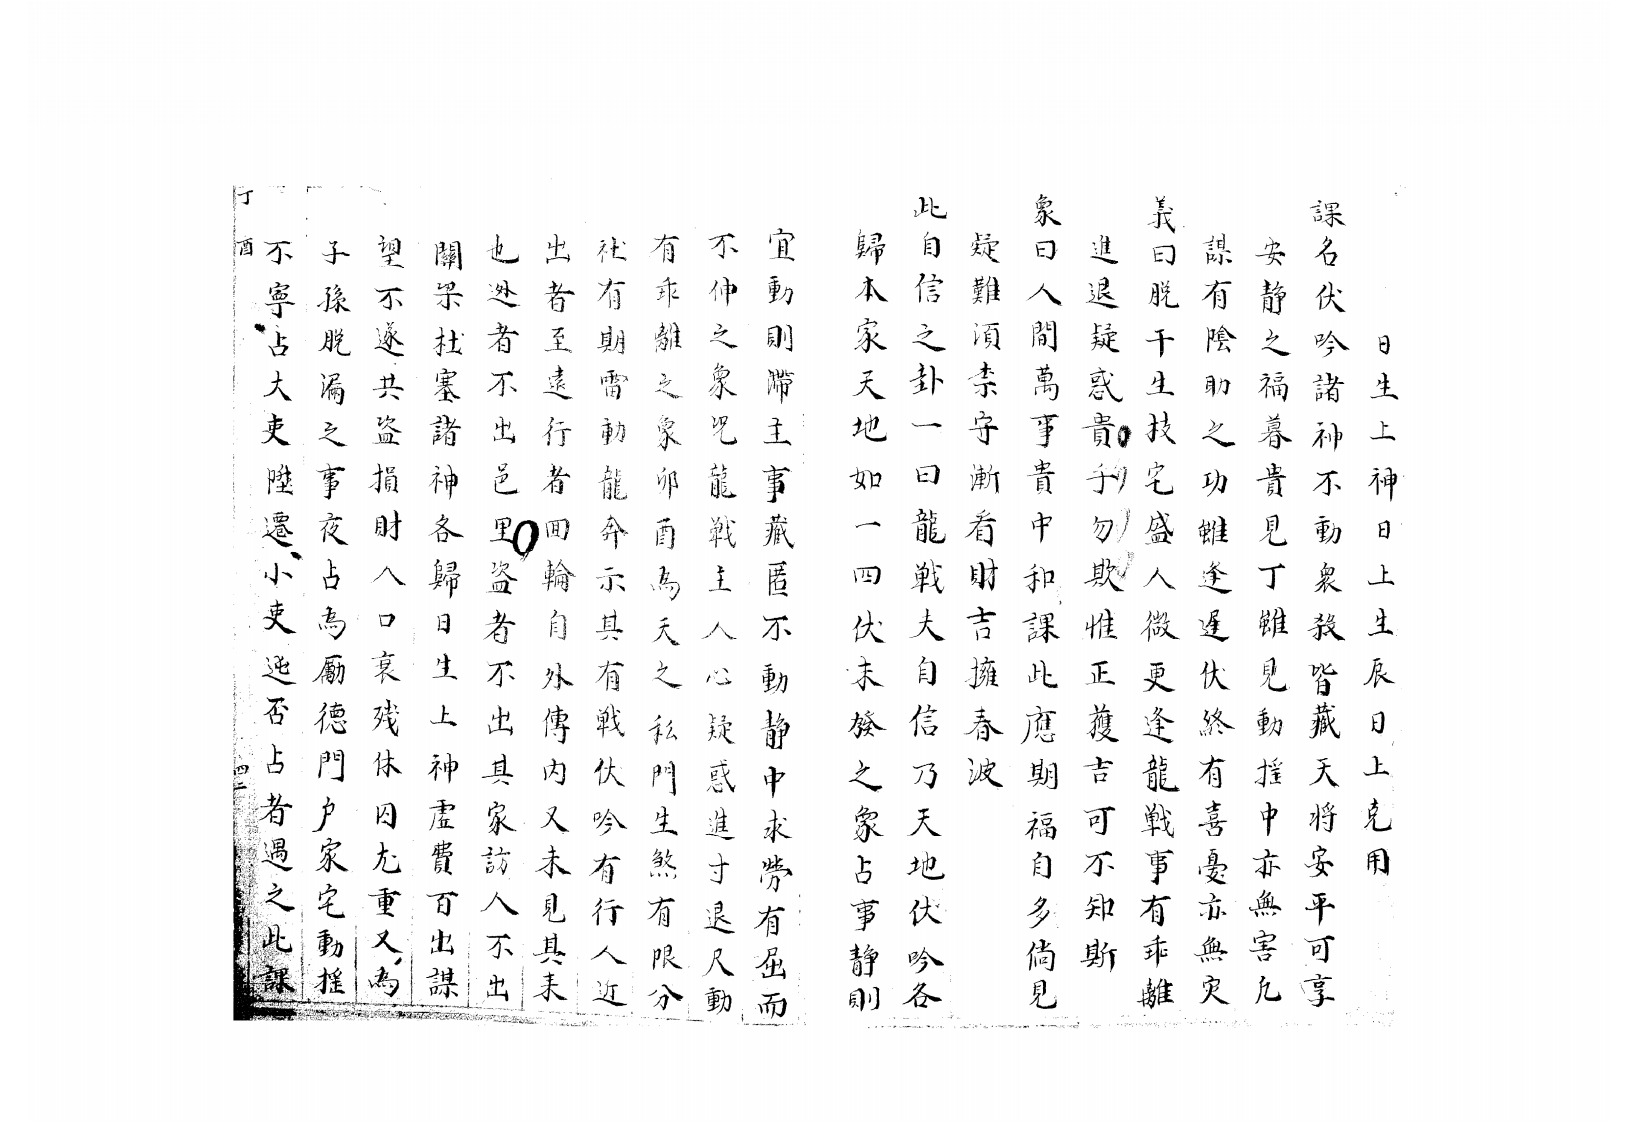 日生上神日上生辰日上克用
課名伏吟諸神不動衆殺皆藏天将安平可享
安静之福暮貴見丁雖見動摇中亦無害凢
謀有陰助之功雖逢遅伏終有喜憂亦無灾
義曰脱干生技宅盛人微更逢龍戦事有乖離
進退疑惑貴乎勿欺惟正護吉可不知斯
象曰人間萬事貴中和課此應期福自多倘見
疑難須柰守漸看財吉擁春波
此自信之卦一曰龍戦夫自信乃天地伏吟各
歸本家天地如一四伏未發之象占事静則
宜動則滯主事藏匿不動静中求勞有屈而
不伸之象況龍戦主人心疑惑進寸退尺動
有乖離之象卯酉為天之私門生煞有限分
社有期雷動龍奔示其有戦伏吟有行人近
出者至遠行者囬輪自外傳内又未見其未
也逃者不出邑里盗者不出其家訪人不出
關梁杜塞諸神各歸日生上神虚費百出謀
望不遂共盗損財人口衰残休囚尤重又為
子孫脱漏之事夜占為勵德門户家宅動摇
不寧占大吏陞遷小吏迍否占者遇之此課
丁酉
四三